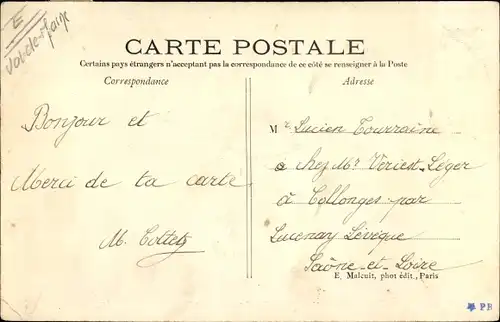 E
Val-de-Marne
CARTE POSTALE
Certains pays étrangers n'acceptant pas la correspondance de ce côté se renseigner à la Poste
Correspondance
Adresse
Bonjour et
Merci de ta carte
M. Cottet
Mr Lucien Tourraine
chez Mr Vériest-Léger
à Collonges par
Lucenay Lévêque
Saône-et-Loire
E. Malcuit, phot édit., Paris
PB